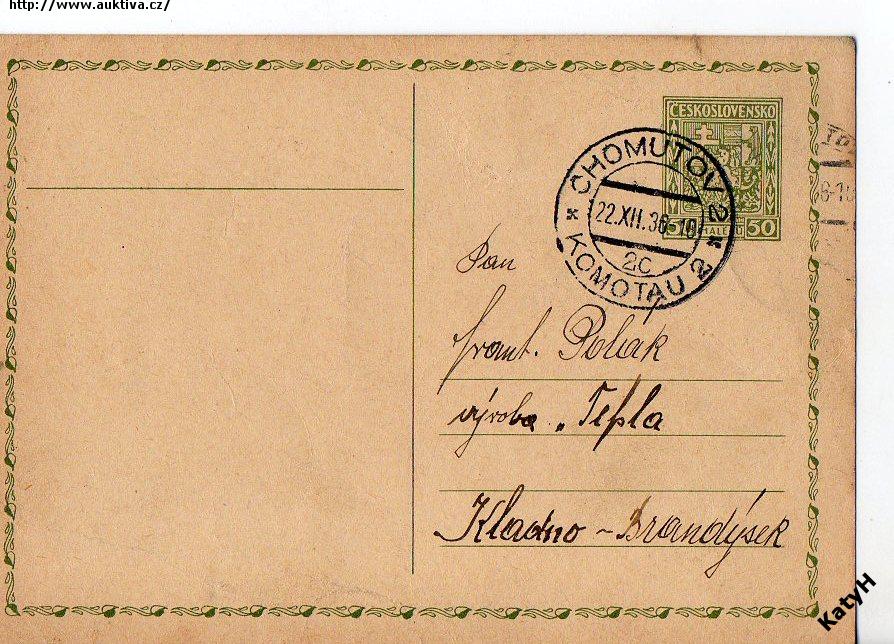 http://www.auktiva.cz/
ČESKOSLOVENSKO
50 HALÉŘŮ 50
CHOMUTOV 2
22.XII.36-10
2C
KOMOTAU 2
Pan
frant. Polák
výroba „Tepla
Kladno - Brandýsek
KatyH